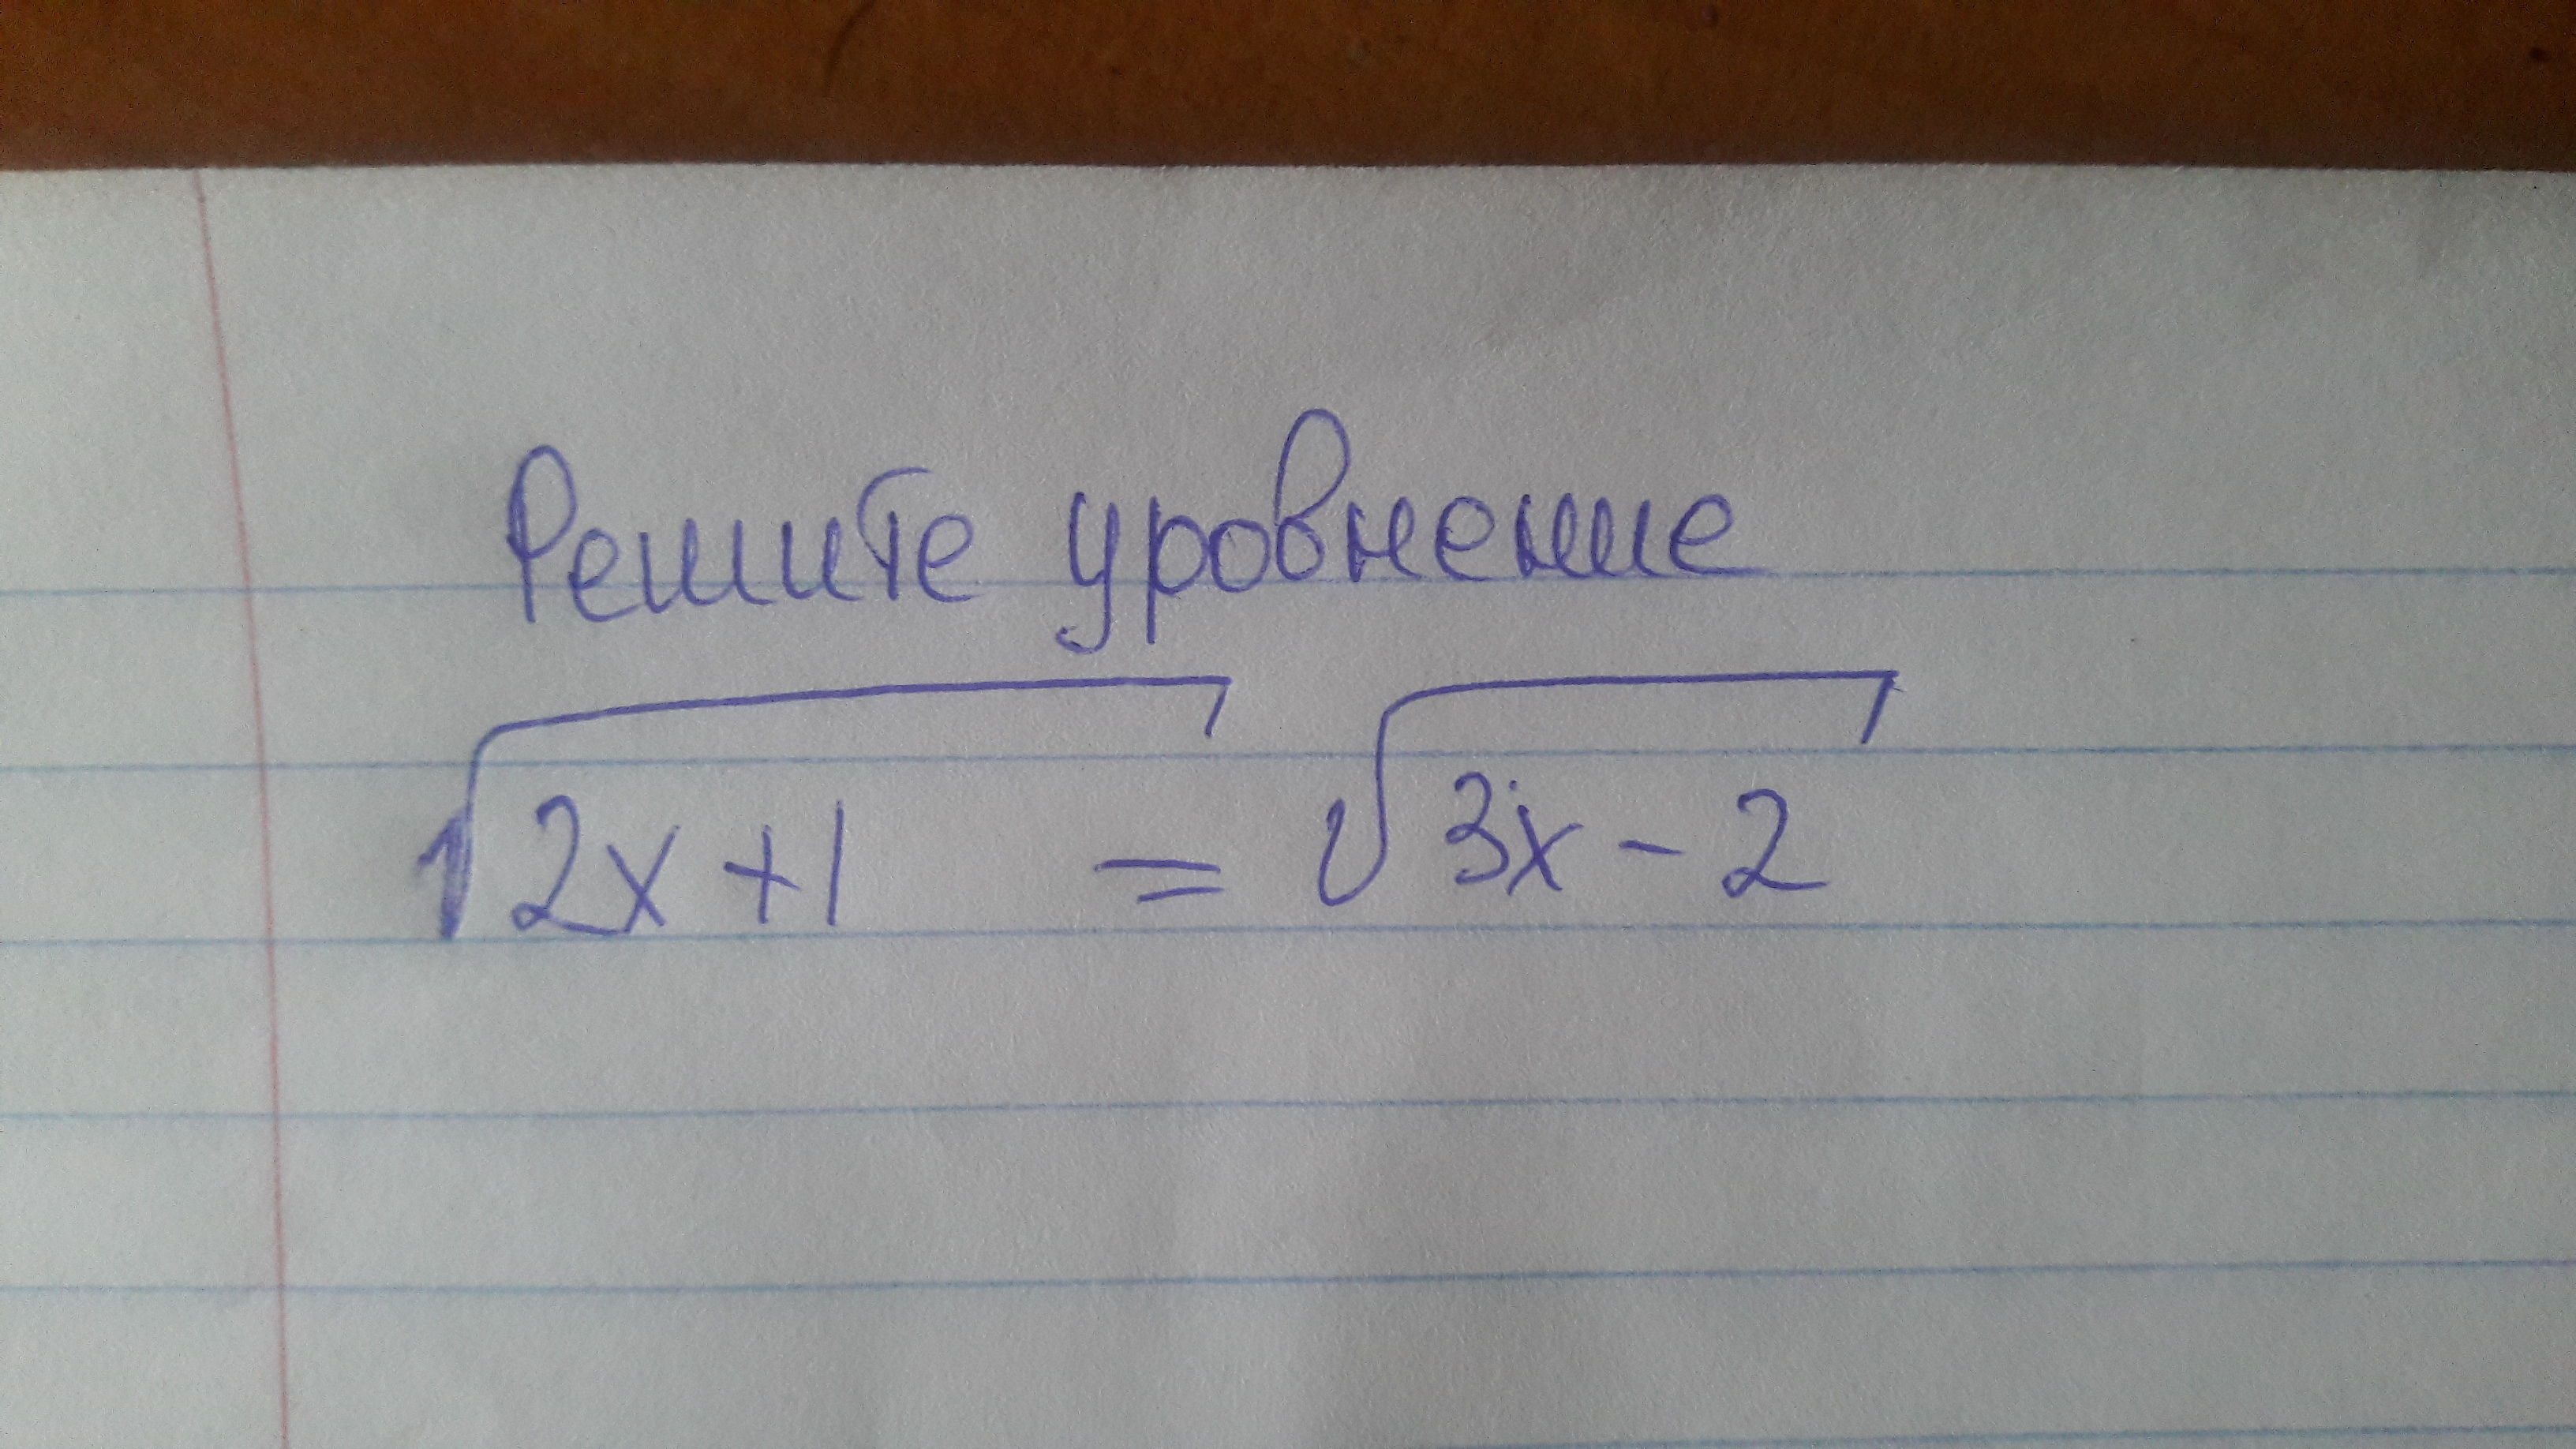 Решите уровнение
√2x+1 = √3x-2